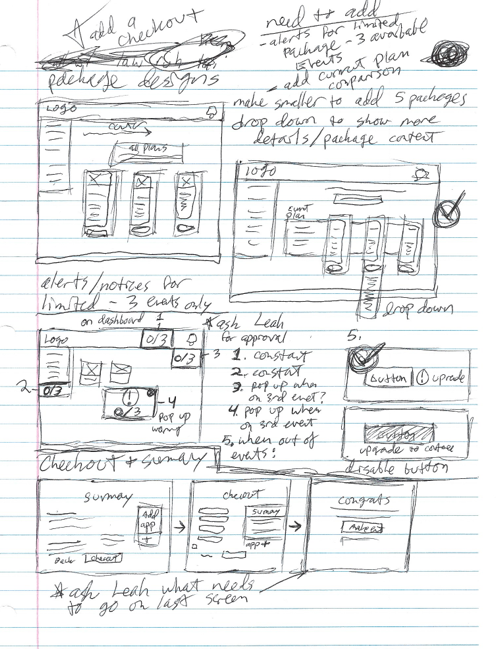 * add a
checkout
package designs
need to add
- alerts for limited
package - 3 available
events
- add current plan
comparison
make smaller to add 5 packages
drop down to show more
details/package content
LOGO
all plans
LOGO
plan
drop down
alerts/notices for
limited - 3 events only
on dashboard 1
Logo
0/3
0/3
3
2
0/3
0/3
4
pop up
* ask Leah
for approval
1. constant
2. constant
3. pop up when
on 3rd event?
4. pop up when
on 3rd event
5. when out of
events?
5.
button
! upgrade
button
upgrade to continue
disable button
Checkout + Summary
Summary
add
app
+
Back
Checkout
checkout
Summary
app +
congrats
* ask Leah what needs
to go on last screen